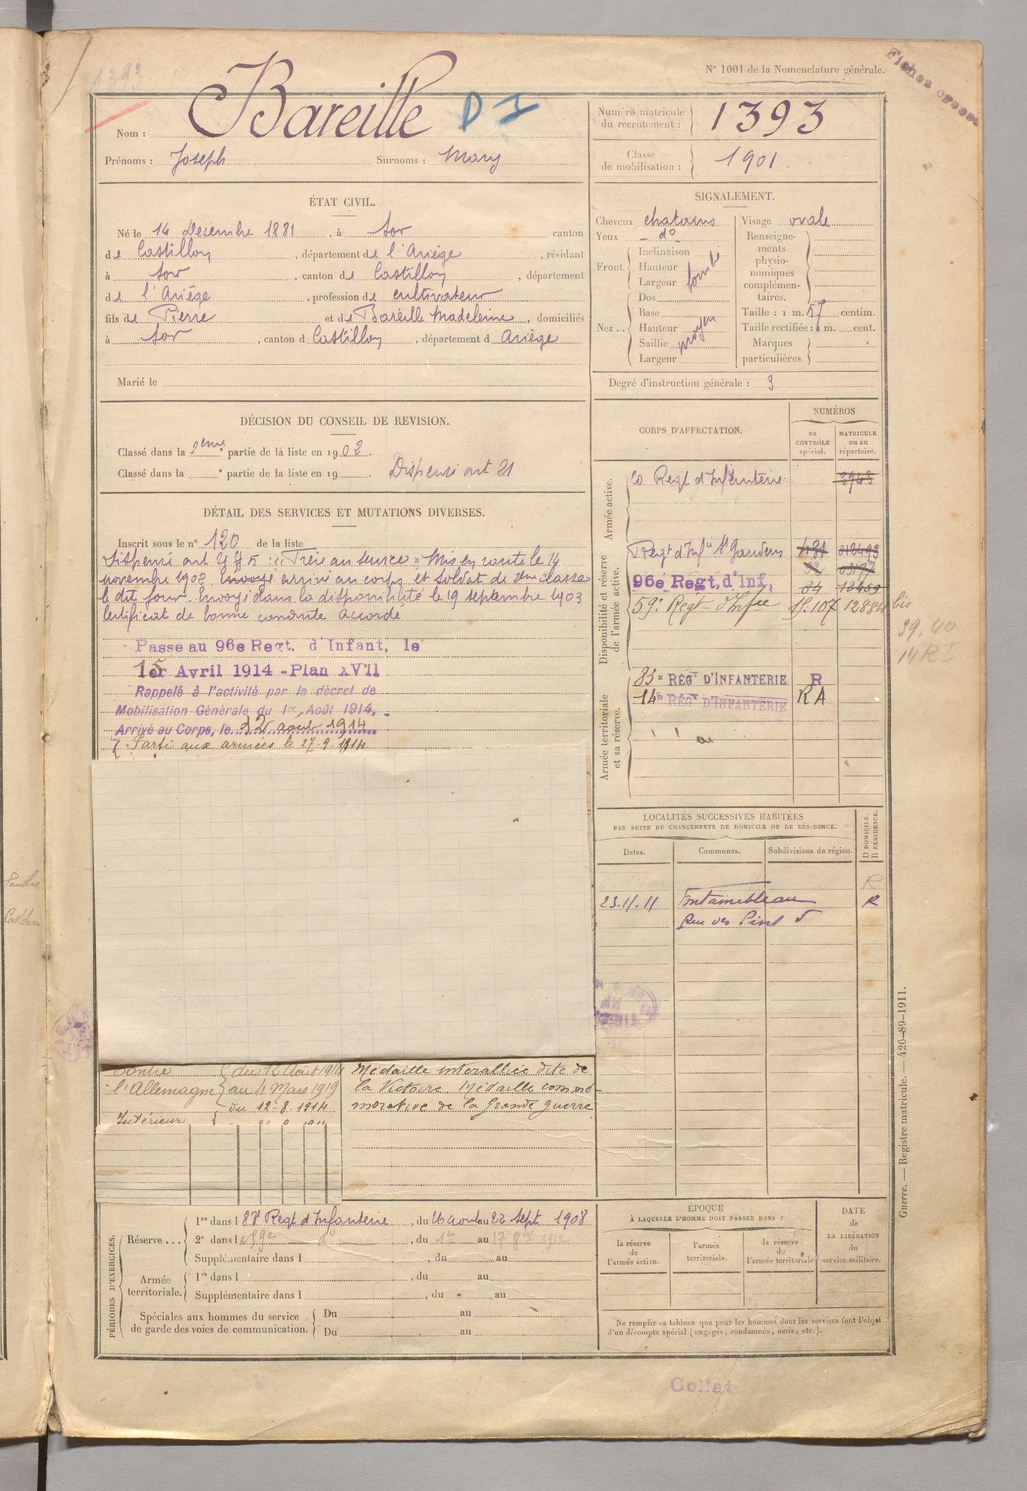 N° 1001 de la Nomenclature générale.
1393
Bareille D I
Nom :
Prénoms : Joseph Surnoms : Mary
Numéro matricule du recrutement : 1393
Classe de mobilisation : 1901
ÉTAT CIVIL.
Né le 14 Decembre 1881, à Sor canton
de Castillon, département de l'Ariège, résidant
à Sor, canton de Castillon, département
de l'Ariège, profession de cultivateur
fils de Pierre et de Bareille Madeleine, domiciliés
à Sor, canton d Castillon, département d Ariège
Marié le
SIGNALEMENT.
Cheveux chatains
Yeux do
Front. Inclinaison
Hauteur
Largeur
Nez. Dos
Base
Hauteur moyen
Saillie
Largeur
Visage ovale
Renseignements physionomiques complémentaires.
Taille : 1 m. 57 centim.
Taille rectifiée : 1 m. cent.
Marques particulières.
Degré d'instruction générale : 3
DÉCISION DU CONSEIL DE REVISION.
Classé dans la 2eme partie de la liste en 1902.
Classé dans la partie de la liste en 19 . Dispensé art 21
DÉTAIL DES SERVICES ET MUTATIONS DIVERSES.
Inscrit sous le n° 120 de la liste
Dispensé art 21 § 5 : Frère au service Mis en route le 14
novembre 1902, arrivé au corps et soldat de 2eme classe
le dit jour. Envoyé dans la disponibilité le 19 septembre 1903
Certificat de bonne conduite accordé
Passe au 96e Regt. d'Infant, le
1er Avril 1914 - Plan XVII
Rappelé à l'activité par le décret de
Mobilisation Générale du 1er Août 1914,
Arrivé au Corps, le 12 août 1914
Parti aux armées le 27.9.1914
Contre l'Allemagne du 12 Août 1914
au 4 Mars 1919
Intérieur du 12-8 1914
Médaille interalliée dite de
la Victoire Médaille commé
morative de la Grande Guerre
CORPS D'AFFECTATION.
NUMÉROS
au CONTRÔLE spécial.
MATRICULE ou au répertoire.
Armée active.
Regt d'Infanterie
3948
Disponibilité et réserve de l'armée active.
Regt d'Infie St Gaudens
96e Regt, d'Inf,
59e Regt d'Infie 107 12884 bis
39.40
14 RI
Armée territoriale et sa réserve.
83e RÉGt D'INFANTERIE R
14e RÉGt D'INFANTERIE R A
LOCALITÉS SUCCESSIVES HABITÉES
PAR SUITE DE CHANGEMENTS DE DOMICILE OU DE RÉSIDENCE.
Dates. Communes. Subdivisions de région. D DOMICILE. R RÉSIDENCE.
R
23.11.11 Fontainebleau R
PÉRIODES D'EXERCICES.
Réserve... 1re dans l 83e Regt d'Infanterie, du 26 aout au 22 Sept 1908
2e dans l 59e do, du 1er au 17
Supplémentaire dans l , du au
Armée territoriale. 1re dans l , du au
Supplémentaire dans l , du au
Spéciales aux hommes du service de garde des voies de communication. Du au
Du au
ÉPOQUE
À LAQUELLE L'HOMME DOIT PASSER DANS :
la réserve de l'armée active.
l'armée territoriale.
la réserve de l'armée territoriale
DATE de LA LIBÉRATION du service militaire.
Ne remplir ce tableau que pour les hommes dont les services font l'objet
d'un décompte spécial (engagés, condamnés, omis, etc.).
Guerre. — Registre matricule. — 426-89-1911.